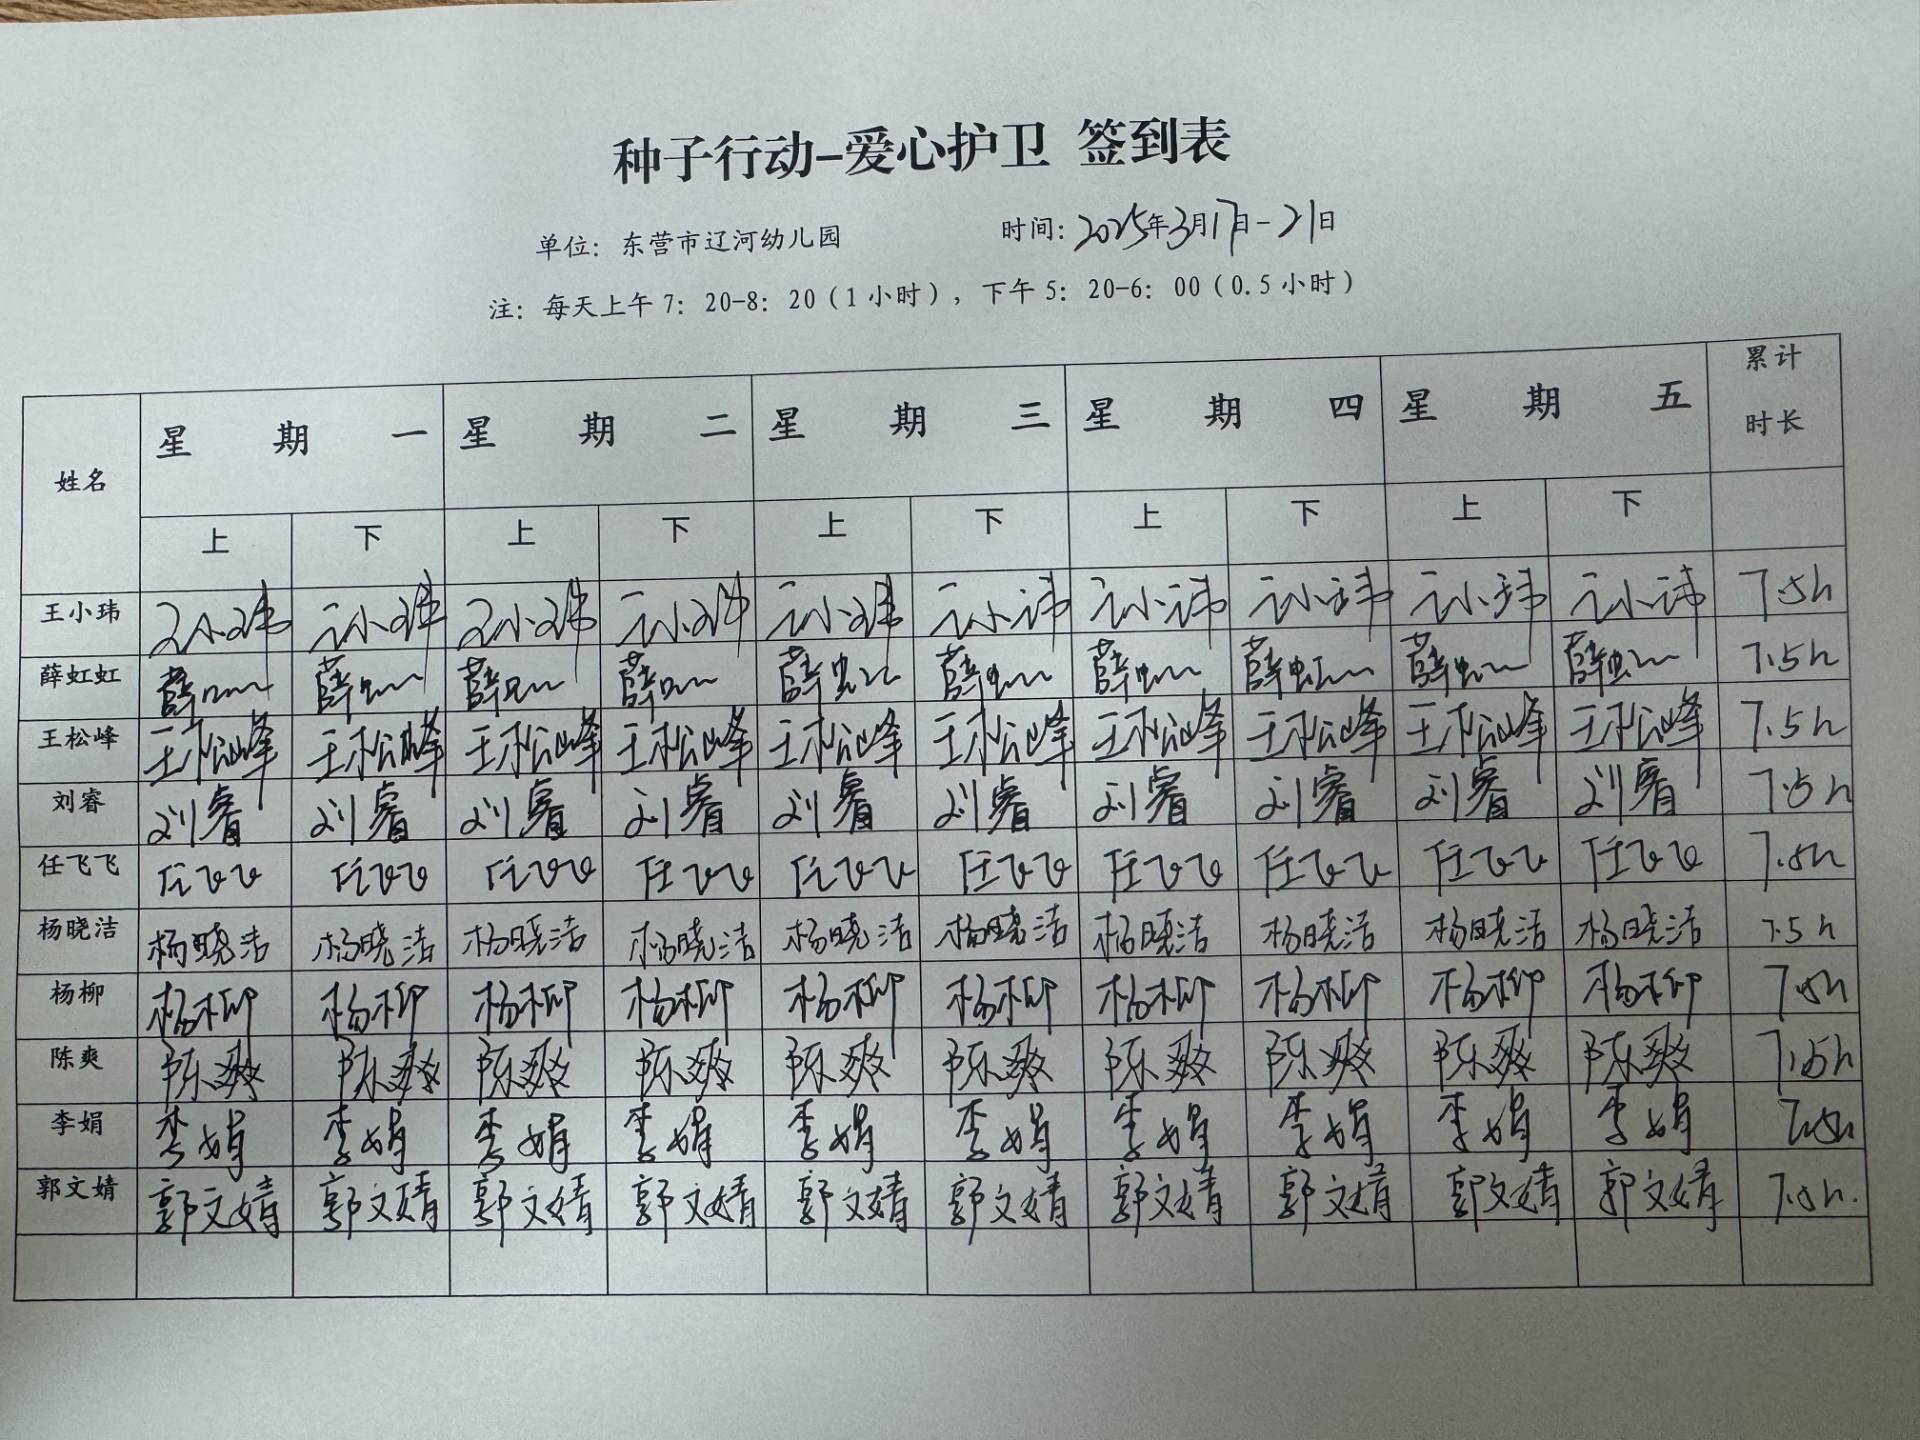 种子行动-爱心护卫 签到表
单位：东营市辽河幼儿园 时间：2025年3月17日-21日
注：每天上午7：20-8：20（1小时），下午5：20-6：00（0.5小时）
姓名 星期一 星期二 星期三 星期四 星期五 累计时长
上 下 上 下 上 下 上 下 上 下
王小玮 王小玮 王小玮 王小玮 王小玮 王小玮 王小玮 王小玮 王小玮 王小玮 王小玮 7.5h
薛虹虹 薛虹虹 薛虹虹 薛虹虹 薛虹虹 薛虹虹 薛虹虹 薛虹虹 薛虹虹 薛虹虹 薛虹虹 7.5h
王松峰 王松峰 王松峰 王松峰 王松峰 王松峰 王松峰 王松峰 王松峰 王松峰 王松峰 7.5h
刘睿 刘睿 刘睿 刘睿 刘睿 刘睿 刘睿 刘睿 刘睿 刘睿 刘睿 7.5h
任飞飞 任飞飞 任飞飞 任飞飞 任飞飞 任飞飞 任飞飞 任飞飞 任飞飞 任飞飞 任飞飞 7.5h
杨晓洁 杨晓洁 杨晓洁 杨晓洁 杨晓洁 杨晓洁 杨晓洁 杨晓洁 杨晓洁 杨晓洁 杨晓洁 7.5h
杨柳 杨柳 杨柳 杨柳 杨柳 杨柳 杨柳 杨柳 杨柳 杨柳 杨柳 7.5h
陈爽 陈爽 陈爽 陈爽 陈爽 陈爽 陈爽 陈爽 陈爽 陈爽 陈爽 7.5h
李娟 李娟 李娟 李娟 李娟 李娟 李娟 李娟 李娟 李娟 李娟 7.5h
郭文婧 郭文婧 郭文婧 郭文婧 郭文婧 郭文婧 郭文婧 郭文婧 郭文婧 郭文婧 郭文婧 7.5h.